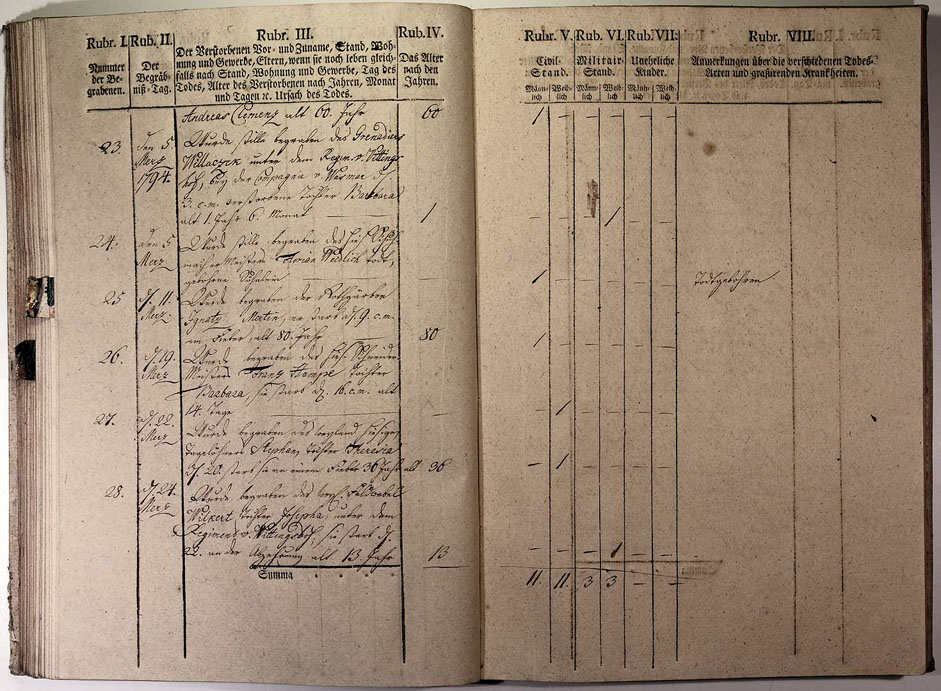 Rubr. I. Rub. II. Rubr. III. Rub. IV.
Nummer der Begrabenen.
Der Begräbniß-Tag.
Der Verstorbenen Vor- und Zuname, Stand, Woh-
nung und Gewerbe, Eltern, wenn sie noch leben gleich-
falls nach Stand, Wohnung und Gewerbe, Tag des
Todes, Alter des Verstorbenen nach Jahren, Monat
und Tagen ꝛc. Ursach des Todes.
Das Alter nach den Jahren.
Andreas Clemenz alt 60. Jahr 60
23. den 5 Merz 1794. Wurde stille begraben des Grenadiers
unter dem Regim. v. Vittings
hof, bey der Compagn v.
3. c. m. verstorbene Tochter Barbara
alt 1. Jahr 6. Monat — 1
24. den 5 Merz Wurde stille begraben des
Meisters Florian Weidlich todt
gebohrne
25 d. 11. Merz Wurde begraben der Rothgärber
Ignatz Mertin, er starb d. 9. c. m.
am Fieber, alt 80. Jahr 80
26. d. 19. Merz Wurde begraben des Schneider
Meisters Franz Hampe Tochter
Barbara, sie starb d. 16. c. m. alt
14. Tage
27. d. 22. Merz Wurde begraben des weyland
Tagelöhners Stephan Tochter Theresia
d. 20. starb sie an einem Fieber 36 Jahr alt 36
28. d. 24. Merz Wurde begraben des Feldwebel
Wilkert Tochter Josepha, unter dem
Regiment v. Vittingshof, sie starb d.
22. an der alt 13. Jahr 13
Summa
Rubr. V. Rub. VI. Rub. VII. Rubr. VIII.
Civil-Stand.
Militair-Stand.
Uneheliche Kinder.
Anmerkungen über die verschiedenen Todes-
Arten und grassirenden Krankheiten.
Männlich Weiblich Männlich Weiblich Männlich Weiblich
1 – – – – –
– – – 1 – –
1 – – – – – Todtgebohren
1 – – – – –
– 1 – – – –
– 1 – – – –
– – – 1 – –
11. 11. 3 3 – –